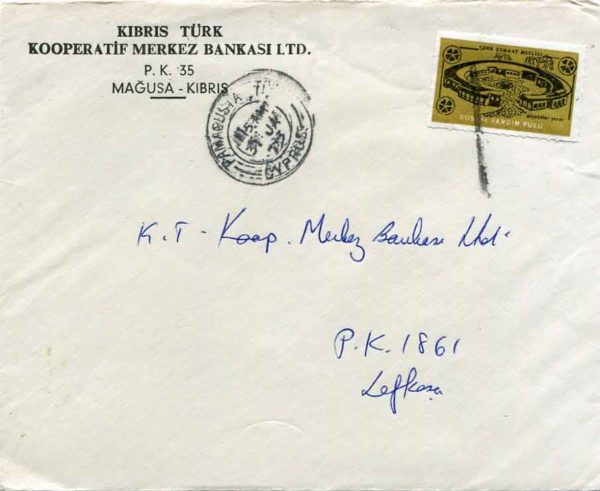 KIBRIS TÜRK
KOOPERATİF MERKEZ BANKASI LTD.
P. K. 35
MAĞUSA - KIBRIS
TÜRK CEMAAT MECLİSİ
SOSYAL YARDIM PULU
FAMAGUSTA
31 JA 73
CYPRUS
K.T - Koop. Merkez Bankası Ltd.
P.K. 1861
Lefkoşa